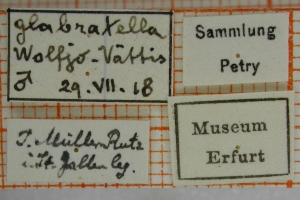 glabratella
Wolfjo-Vättis
♂ 29.VII.18
Sammlung
Petry
J. Müller-Rutz
i. St. Gallen leg.
Museum
Erfurt